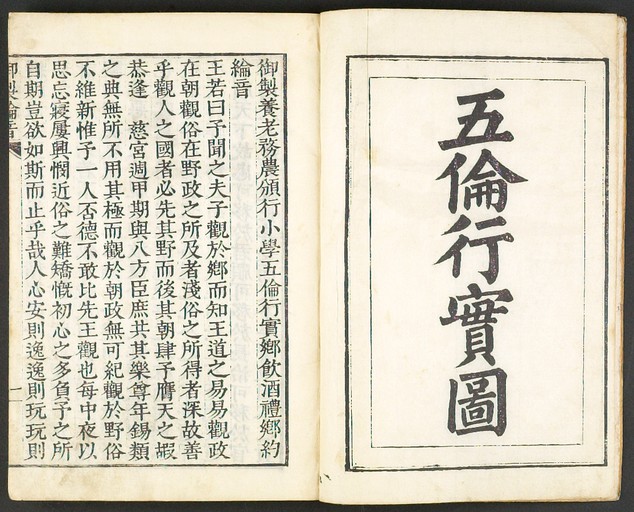 五倫行實圖
御製養老務農頒行小學五倫行實鄉飲酒禮鄉約
綸音
王若曰予聞之夫子觀於鄉而知王道之易易觀政
在朝觀俗在野政之所及者淺俗之所得者深故善
乎觀人之國者必先其野而後其朝肆予膺天之嘏
恭逢 慈宮週甲期與八方臣庶共其樂尊年錫類
之典無所不用其極而觀於朝政無可紀觀於野俗
不維新惟予一人否德不敢比先王觀也每中夜以
思忘寢屢興憫近俗之難矯慨初心之多負予之所
自期豈欲如斯而止乎哉人心安則逸逸則玩玩則
御製綸音
一